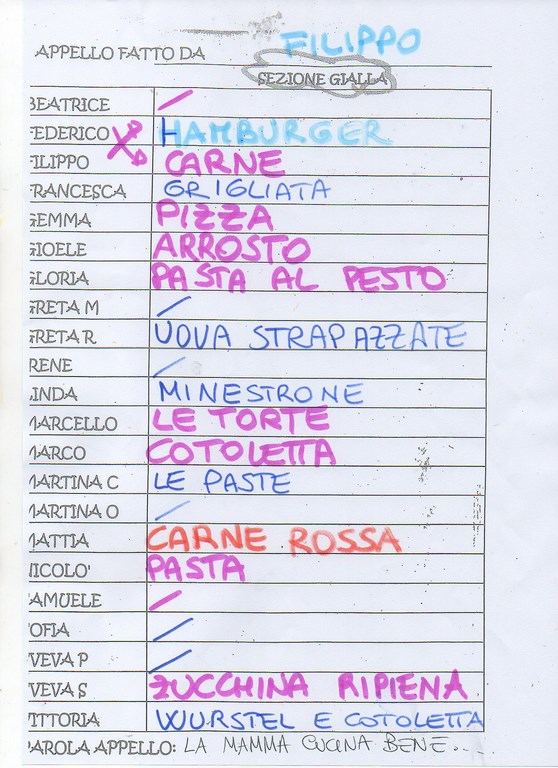 APPELLO FATTO DA FILIPPO
SEZIONE GIALLA
BEATRICE /
FEDERICO HAMBURGER
FILIPPO CARNE
FRANCESCA GRIGLIATA
GEMMA PIZZA
GIOELE ARROSTO
GLORIA PASTA AL PESTO
GRETA M /
GRETA R UOVA STRAPAZZATE
RENE /
LINDA MINESTRONE
MARCELLO LE TORTE
MARCO COTOLETTA
MARTINA C LE PASTE
MARTINA O /
MATTIA CARNE ROSSA
NICOLO' PASTA
SAMUELE /
SOFIA /
VEVA P /
VEVA S ZUCCHINA RIPIENA
VITTORIA WURSTEL E COTOLETTA
PAROLA APPELLO: LA MAMMA CUCINA BENE....